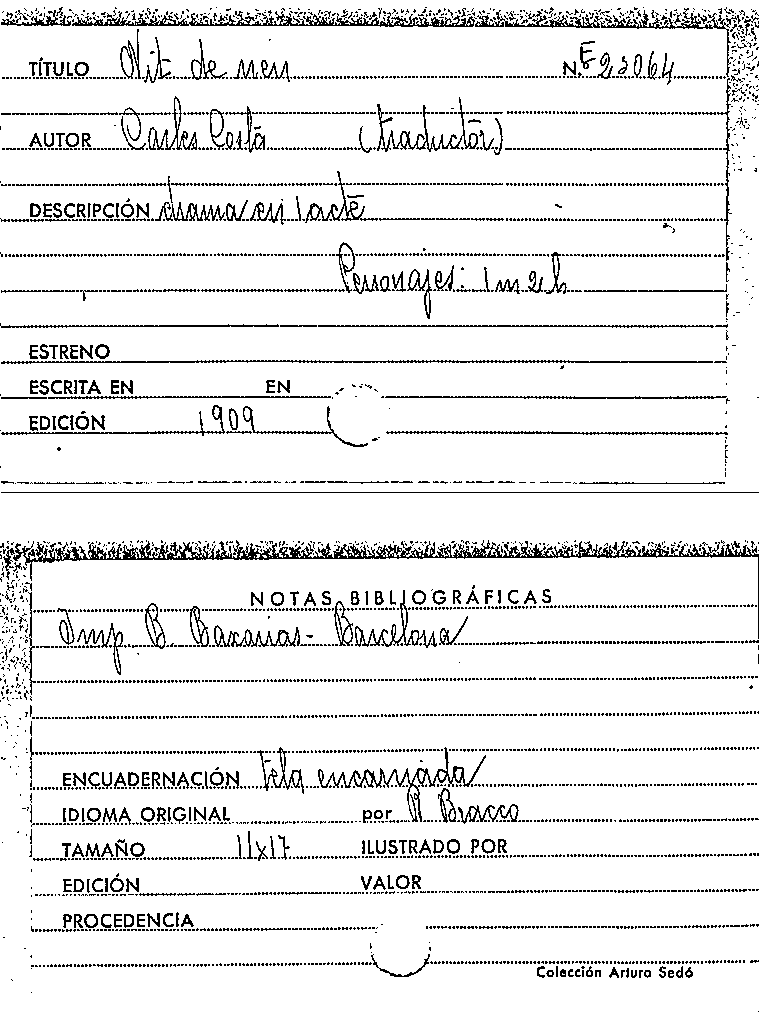 TÍTULO Nit de neu N.º E 23064
AUTOR Carles Costa (traductor)
DESCRIPCIÓN drama en 1 acte
Personajes: 1 m 2 h
ESTRENO
ESCRITA EN EN
EDICIÓN 1909
NOTAS BIBLIOGRÁFICAS
Imp. B. Baxarias - Barcelona
ENCUADERNACIÓN tela encarnada
IDIOMA ORIGINAL por R Bracco
TAMAÑO 11x17 ILUSTRADO POR
EDICIÓN VALOR
PROCEDENCIA
Colección Arturo Sedó